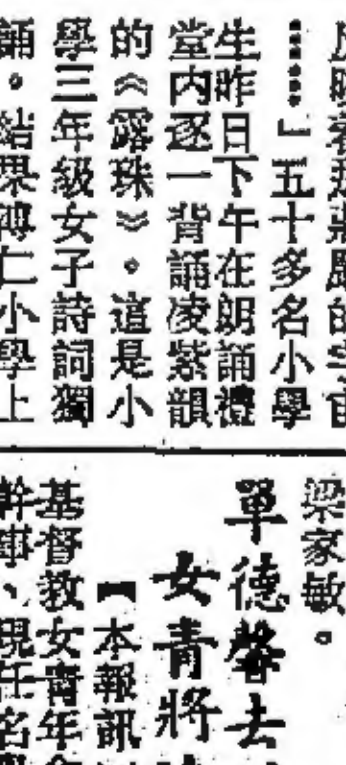 ……」五十多名小學
生昨日下午在朗誦禮
堂内逐一背誦凌紫韻
的《露珠》。這是小
學三年級女子詩詞獨
誦。結果博仁小學上
梁家敏。
單德馨去
女青將
【本報訊
基督教女青年
幹事、現任名